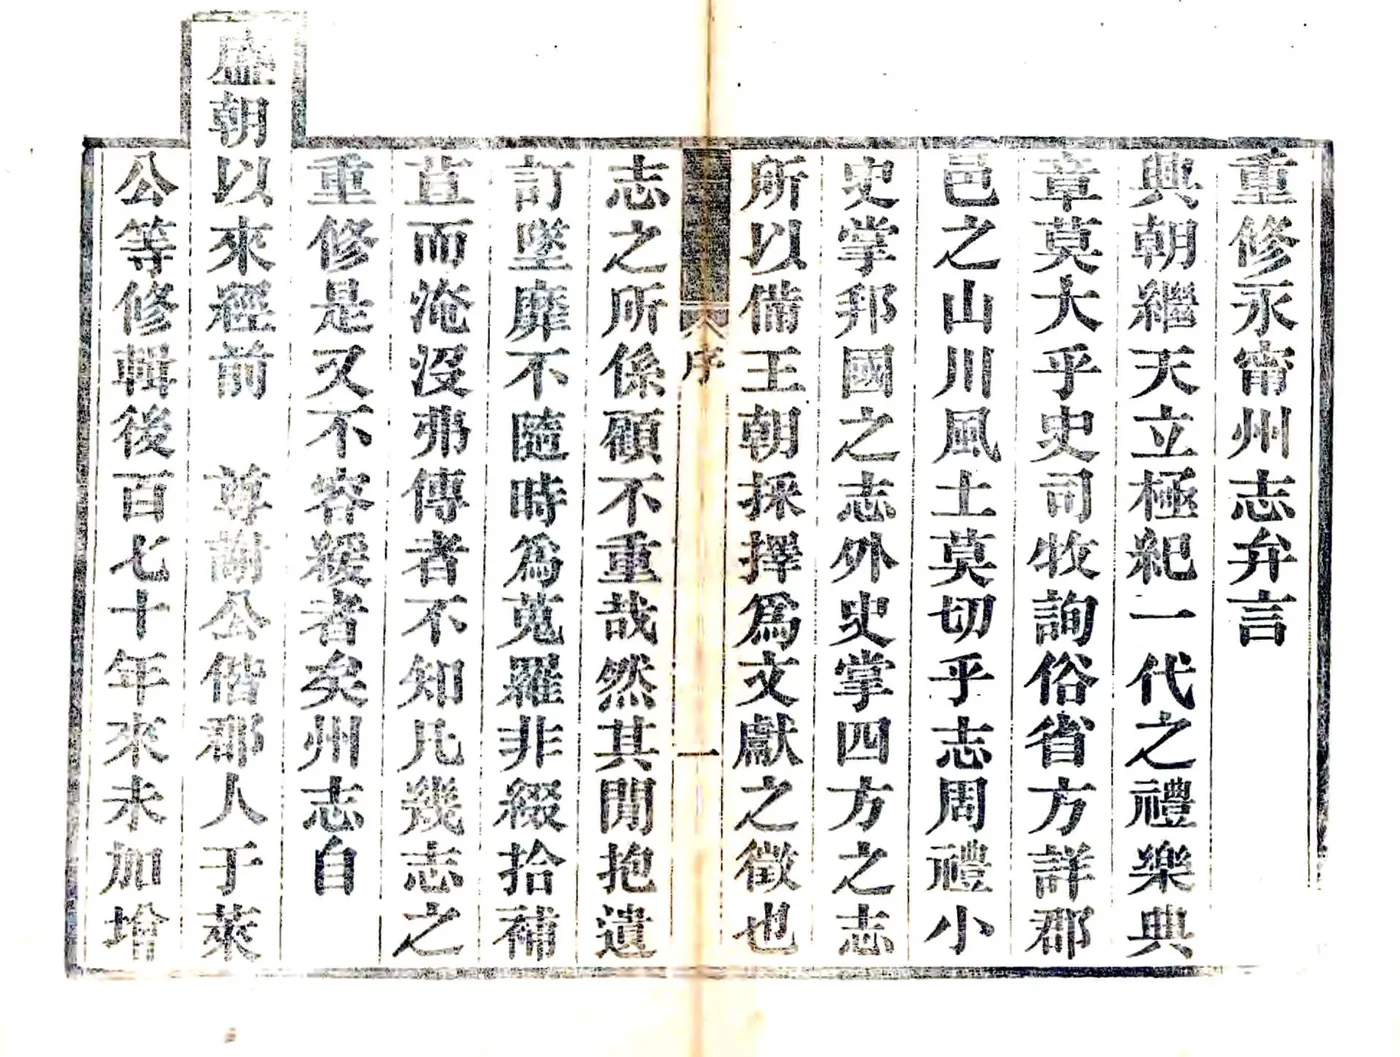 重修永甯州志弁言
興朝繼天立極紀一代之禮樂典
章莫大乎史司牧詢俗省方詳郡
邑之山川風土莫切乎志周禮小
史掌邦國之志外史掌四方之志
所以備王朝採擇爲文獻之徵也
序
一
志之所係顧不重哉然其閒抱遺
訂墜靡不隨時爲蒐羅非綴拾補
苴而淹沒弗傳者不知凡幾志之
重修是又不容緩者矣州志自
朝以來經前 尊謝公偕郡人于萊
公等修輯後百七十年來未加增